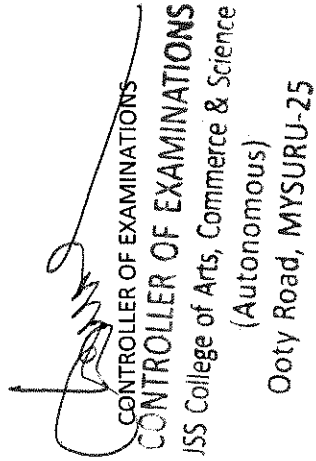 CONTROLLER OF EXAMINATIONS
CONTROLLER OF EXAMINATIONS
JSS College of Arts, Commerce & Science
(Autonomous)
Ooty Road, MYSURU-25